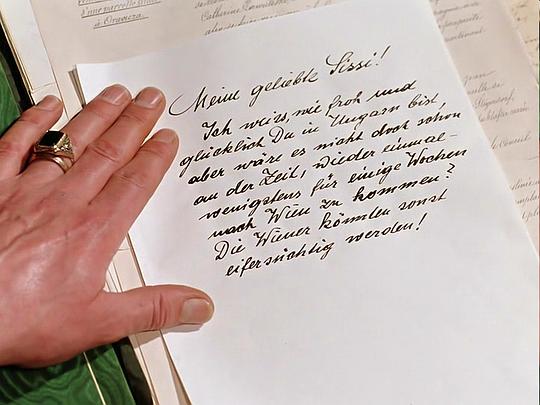 d'une parcelle
à Oravicza.
Catherine
Meine geliebte Sissi!
Ich weiss, wie froh und
glücklich Du in Ungarn bist,
aber wäre es nicht doch schon
an der Zeit, wieder einmal -
wenigstens für einige Wochen
nach Wien zu kommen?
Die Wiener könnten sonst
eifersüchtig werden!